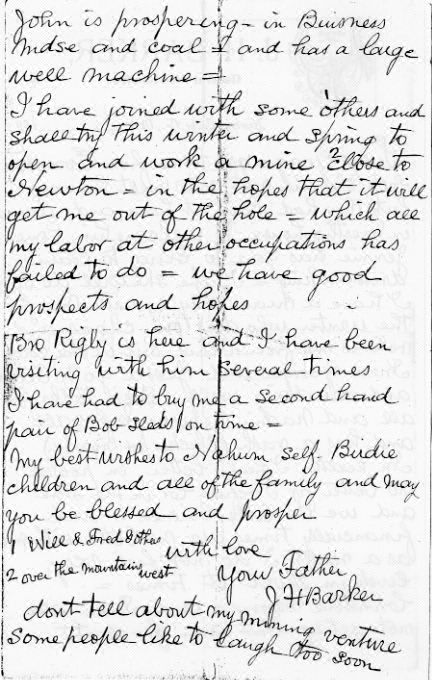 John is prospering - in Buisness
Mdse and coal = and has a large
well machine =
I have joined with some others and
shall try this winter and spring to
open and work a mine 2 close to
Newton = in the hopes that it will
get me out of the hole = which all
my labor at other occupations has
failed to do = we have good
prospects and hopes
Bro Rigby is here and I have been
visiting with him several times
I have had to buy me a second hand
pair of Bob sleds on time =
My best wishes to Nahum self. Budie
children and all of the family and may
you be blessed and prosper
1 Will & Fred & othrs with love
2 over the mountains west Your Father
J H Barker
dont tell about my mining venture
some people like to laugh too soon